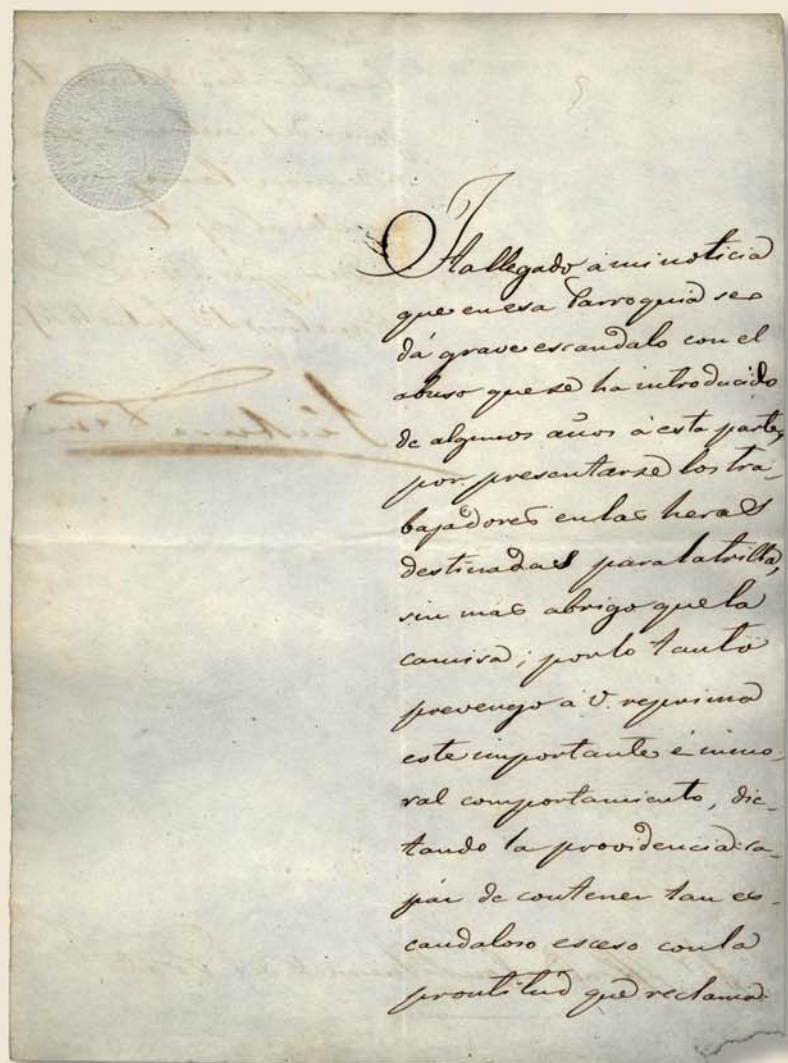 Ha llegado à mi noticia
que en esa Parroquia se
dá grave escandalo con el
abuso que se ha introducido
de algunos años à esta parte,
por presentarse los tra-
bajadores en las heras
destinadas para la trilla,
sin mas abrigo que la
camisa; por lo tanto
prevengo à V. reprima
este importante é inmo-
ral comportamiento, dic-
tando la providencia ca-
páz de contener tan es-
candaloso esceso con la
prontitud que reclama